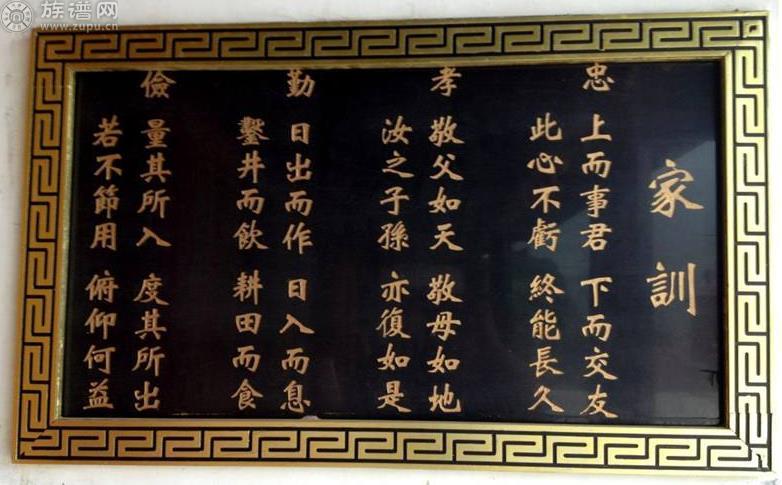 族谱网
www.zupu.cn
家訓
忠
上而事君 下而交友
此心不虧 終能長久
孝
敬父如天 敬母如地
汝之子孫 亦復如是
勤
日出而作 日入而息
鑿井而飲 耕田而食
儉
量其所入 度其所出
若不節用 俯仰何益